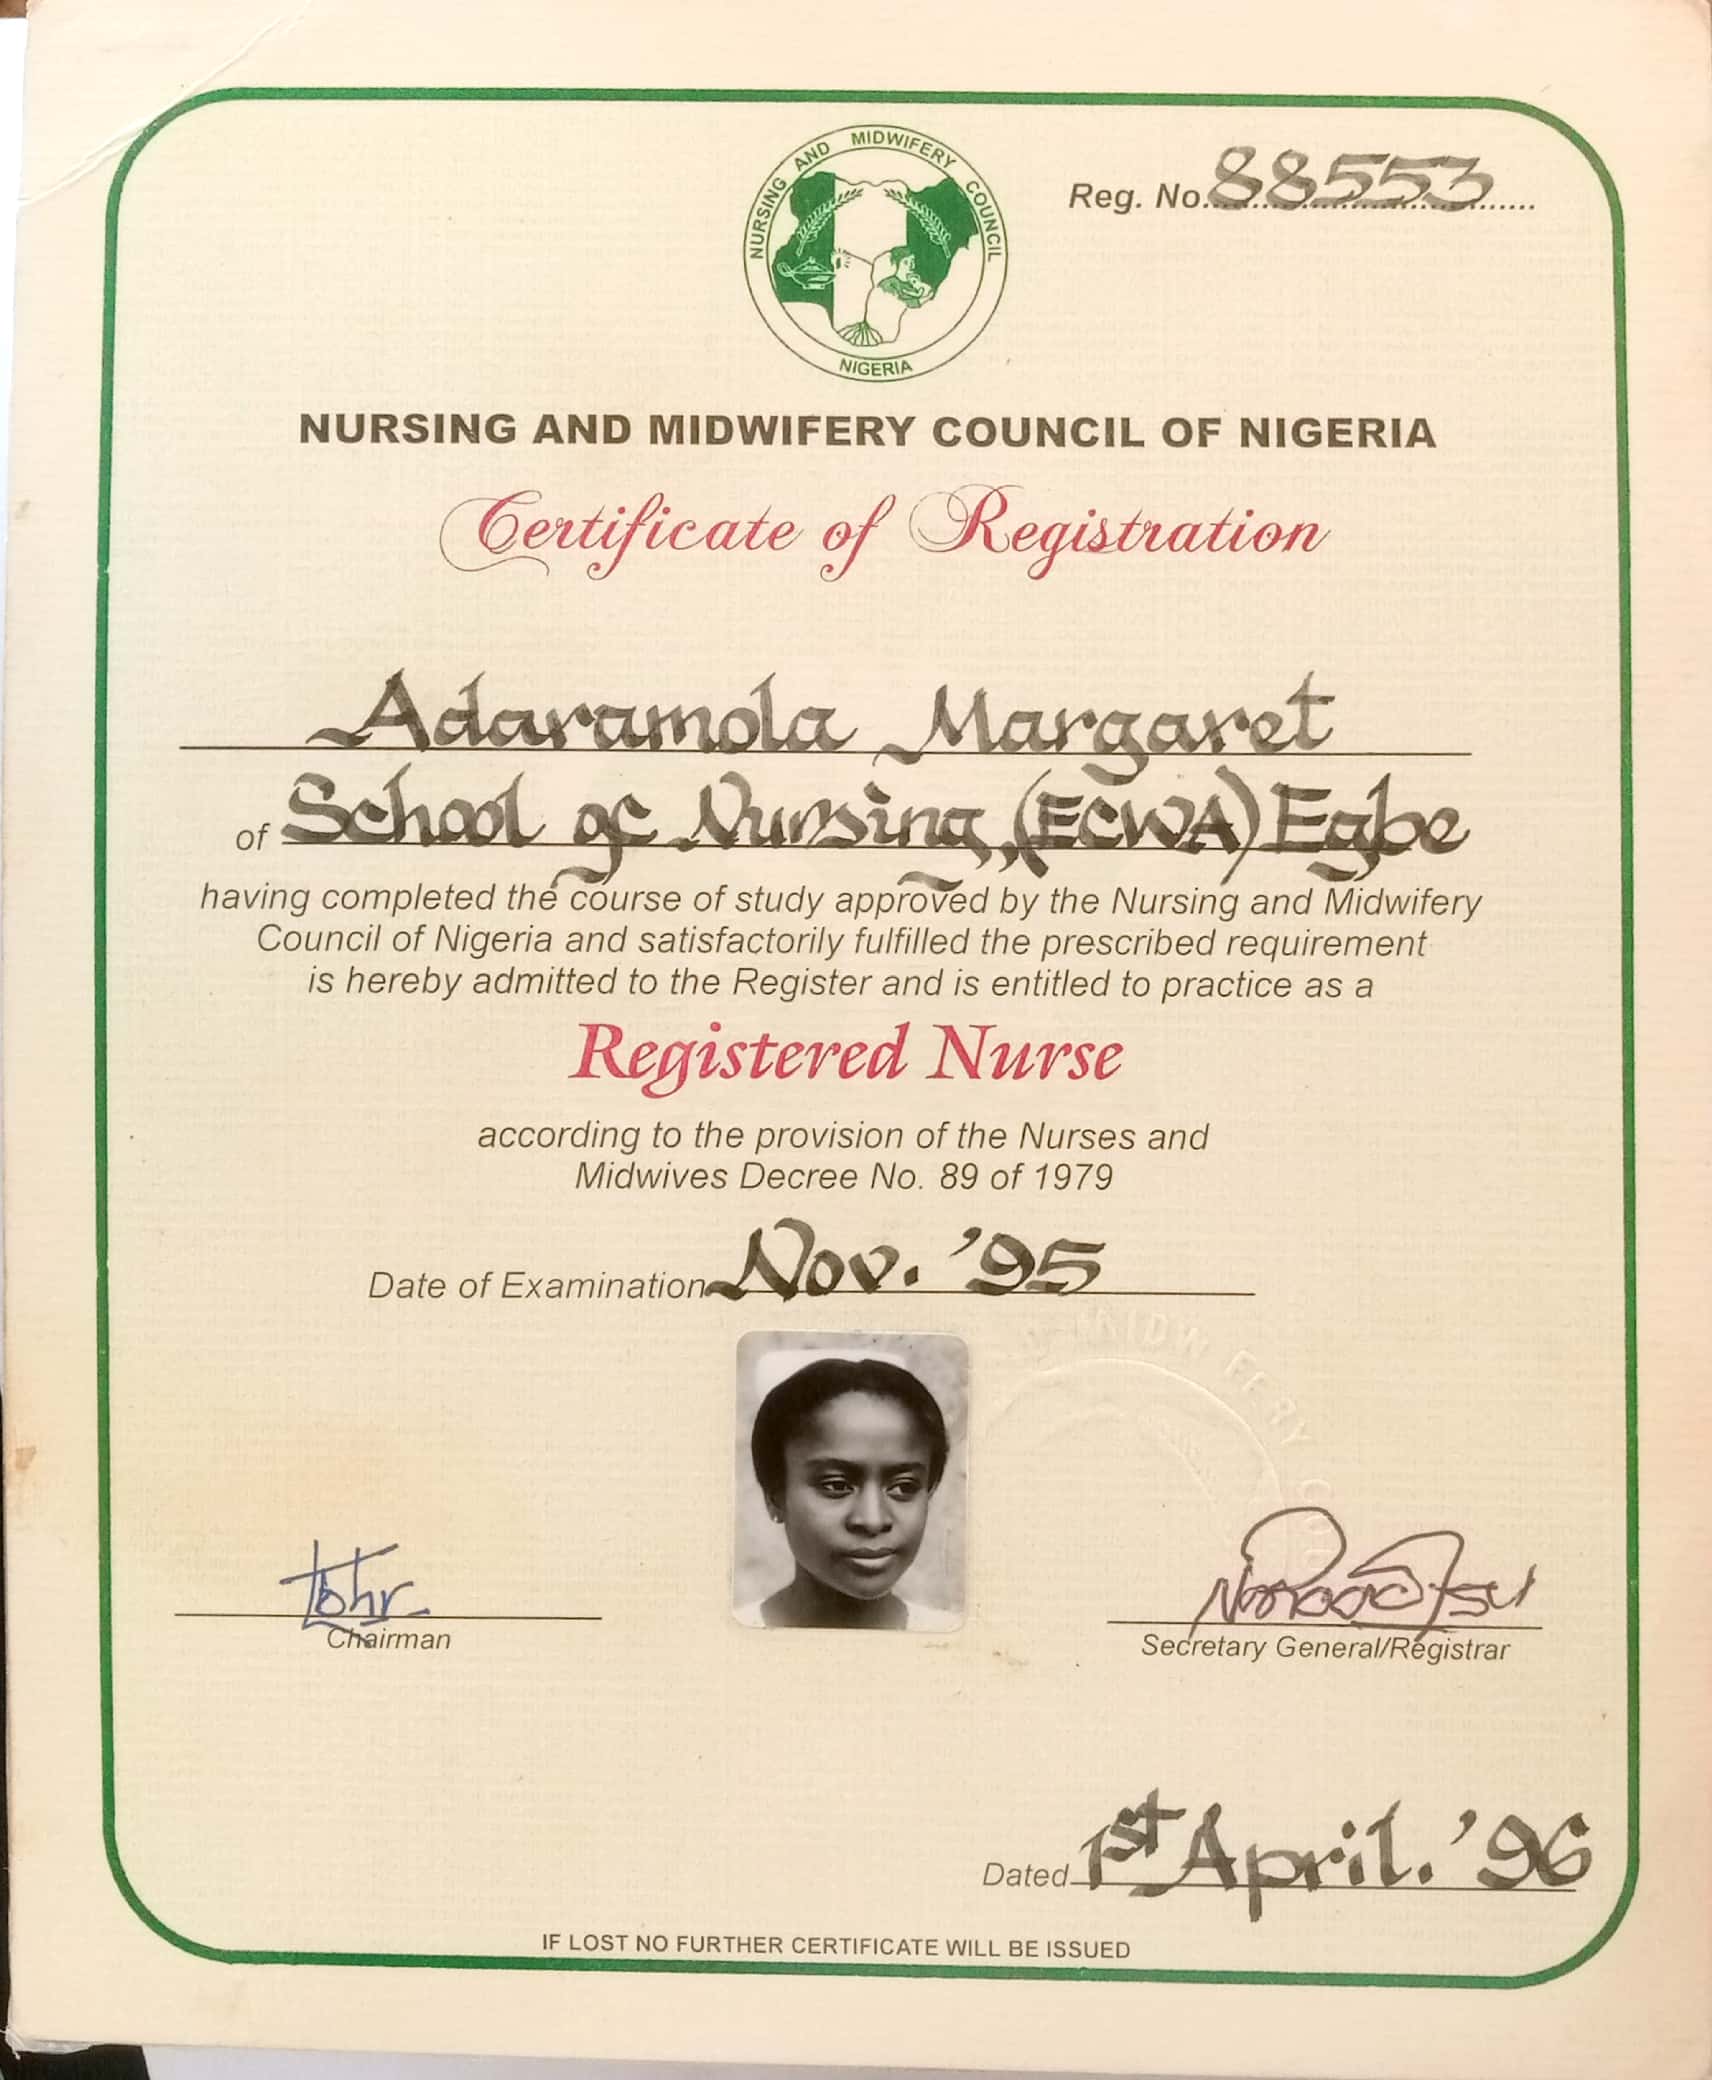 NURSING AND MIDWIFERY COUNCIL
NIGERIA
Reg. No. 88553
NURSING AND MIDWIFERY COUNCIL OF NIGERIA
Certificate of Registration
Adaramola Margaret
of School of Nursing, (ECWA) Egbe
having completed the course of study approved by the Nursing and Midwifery
Council of Nigeria and satisfactorily fulfilled the prescribed requirement
is hereby admitted to the Register and is entitled to practice as a
Registered Nurse
according to the provision of the Nurses and
Midwives Decree No. 89 of 1979
Date of Examination Nov. '95
MIDWIFERY
Chairman
Secretary General/Registrar
Dated 1st April. '96
IF LOST NO FURTHER CERTIFICATE WILL BE ISSUED